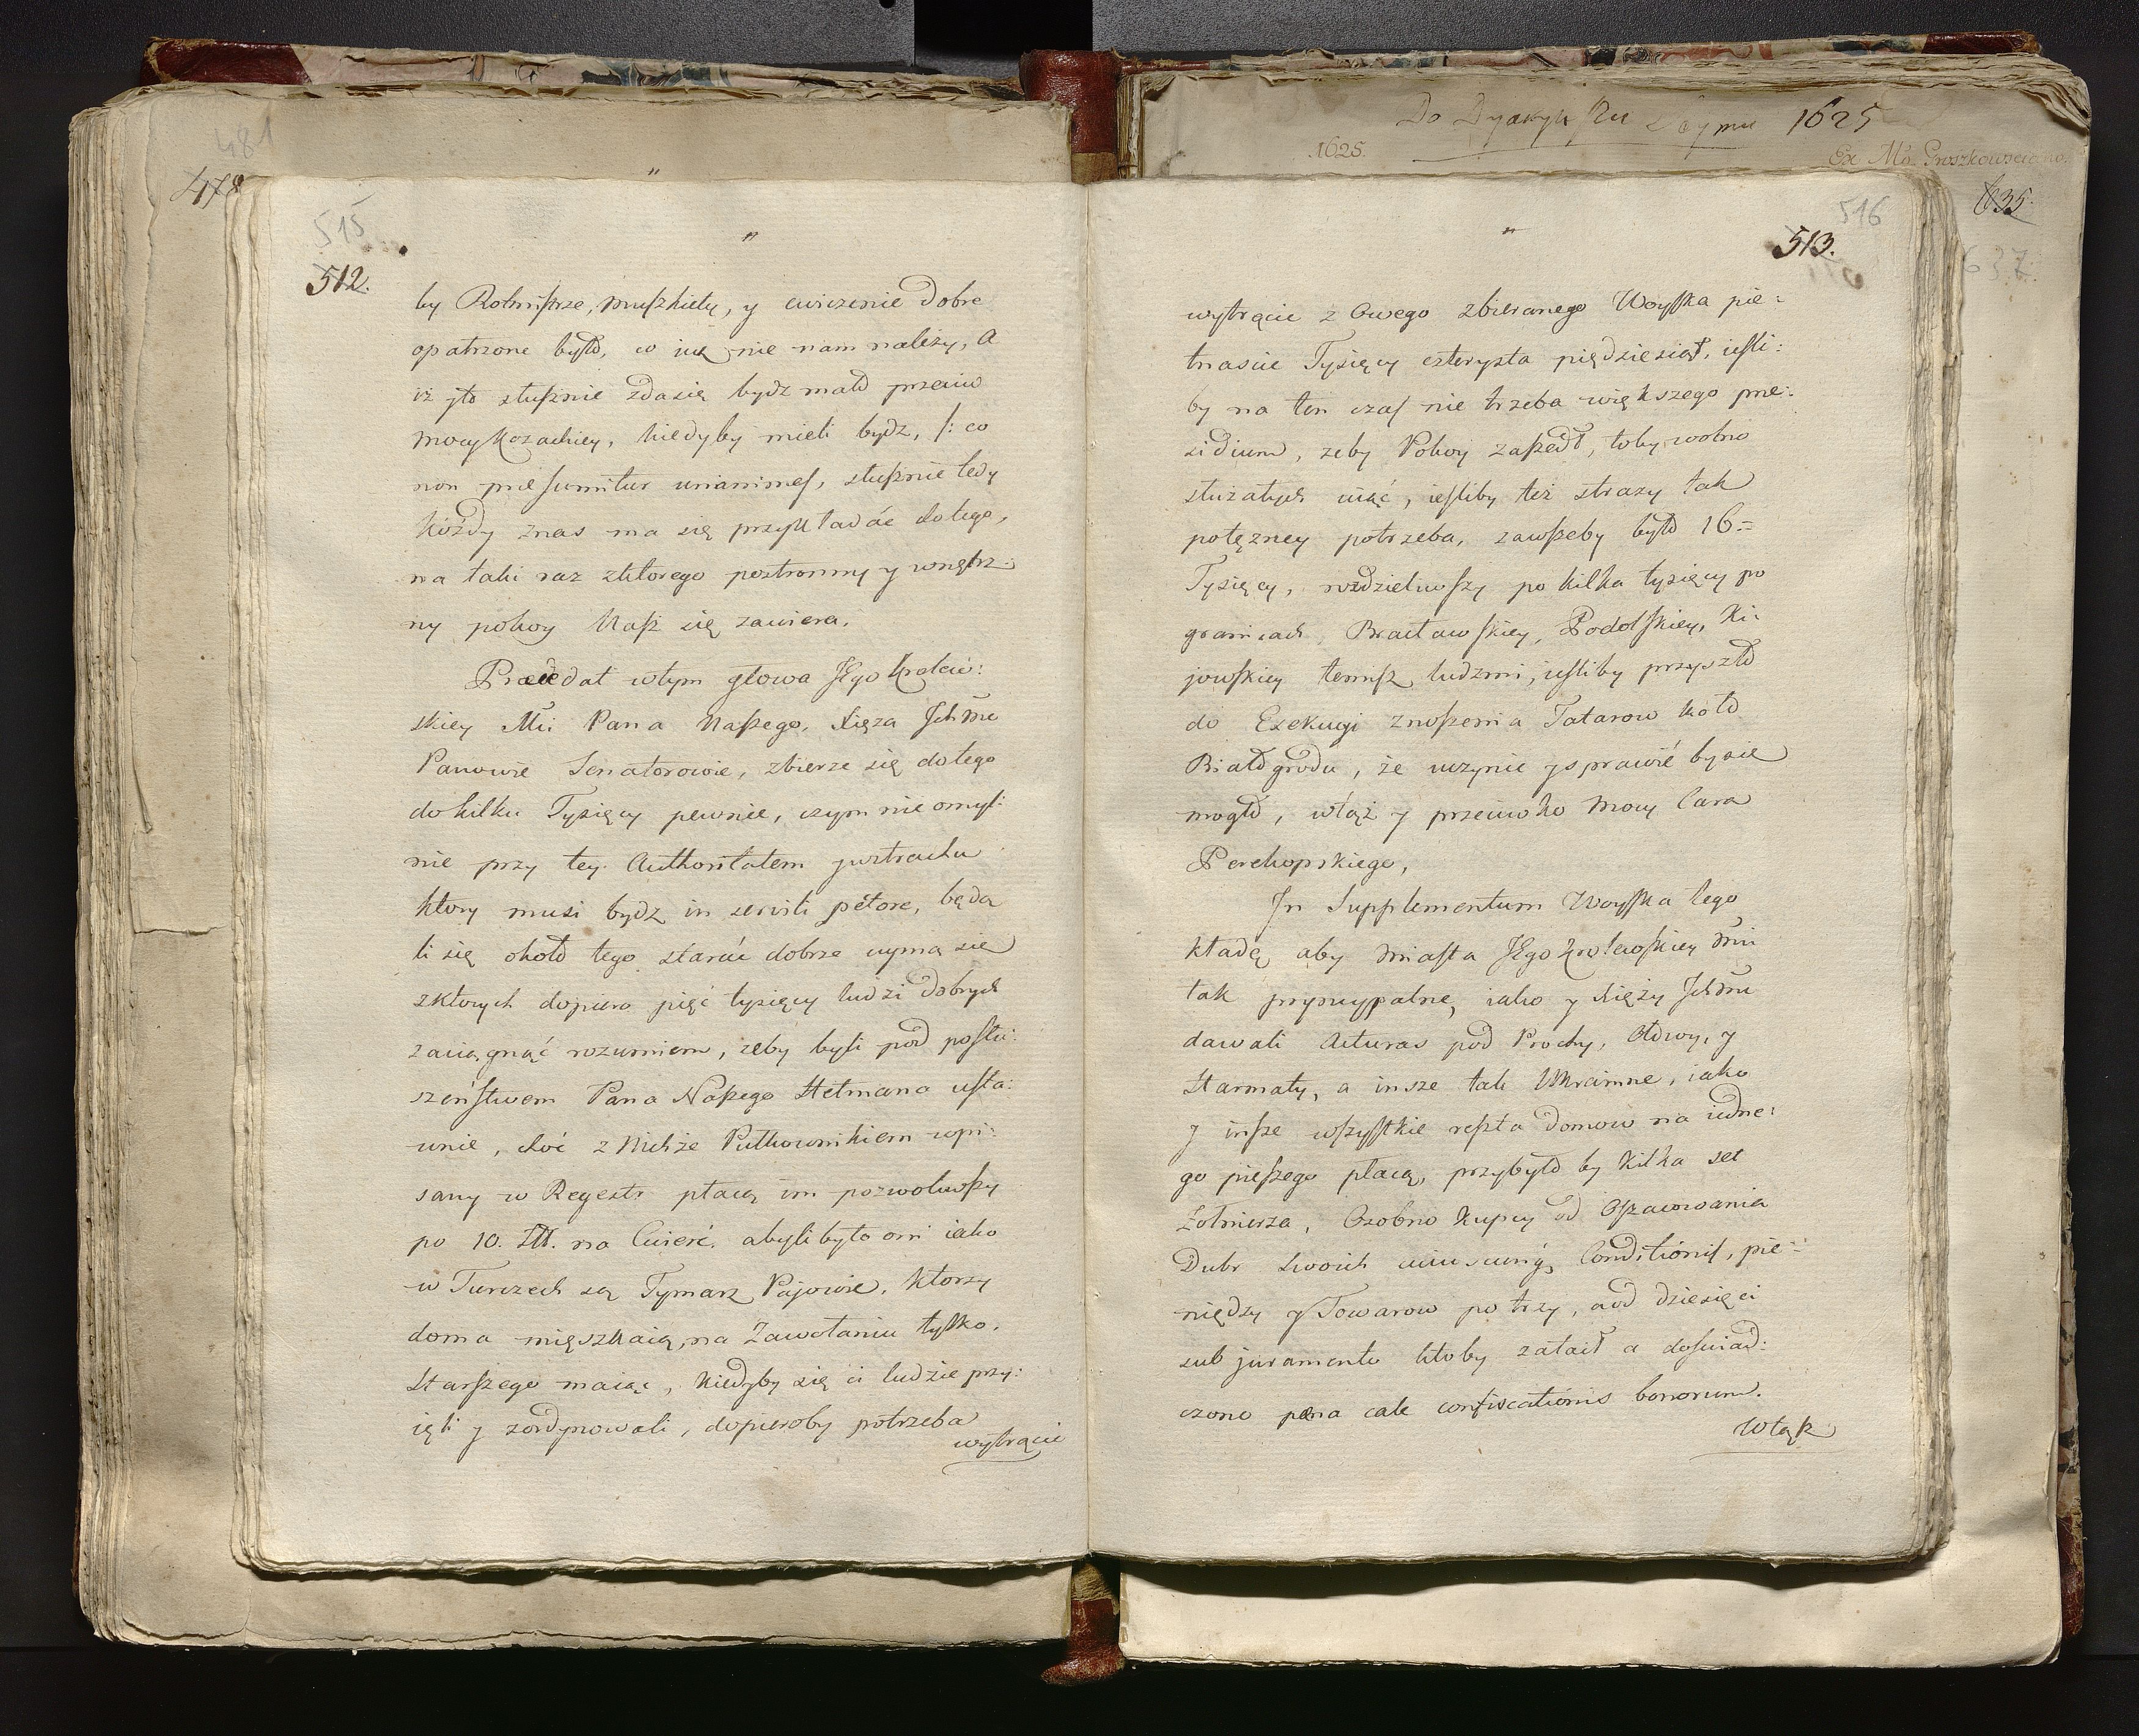 481
478
"
515
512.
"
by Rotmistrze, muszkiety, y cwiczenie dobre
opatrzone było, w iuż nie nam należy, A
iż yto słusznie zda się bydz mało przeciw
mocy Kozackiey, kiedyby mieli bydz, /: co
non praesumitur unanimes, słusznie tedy
każdy znas ma się przykładać do tego,
na taki raz zktorego postronny y wnętrz:
ny pokoy Nasz się zawiera.
Praecedat wtym głowa JEgo Krolew:
skiey Mći Pana Naszego, Xięza Ichmć
Panowie Senatorowie, zbierze się do tego
do kilku Tysięcy pewnie, czym nie omyl:
nie przy tey Authoritatem postrachu
ktory musi bydz in servili pectore, będą
li się około tego starać dobrze uyma się
zktorych dopiero pięć tysięcy ludzi dobrych
zaciągnąć rozumiem, żeby byli pod posłu:
szeństwem Pana Naszego Hetmana usta:
wnie, choć z Nichże Pułkownikiem wpi:
sany w Regestr płacą im pozwoliwszy
po 10. Złł. na Cwierć. abyli byto oni iako
w Turczech są Tymarz Pajowie, ktorzy
doma mięszkaią, na Zawołaniu tylko.
Starszego maiąc, kiedyby się ci ludzie przy:
ięli y zordynowali, dopieroby potrzeba
wytrącić
Do Dyaryuszu Seymu 1625
1625.
Ex Ms. Proszkowsciano.
635.
637.
516
"
513.
wytrącić z Owego zbieranego Woyska pie:
tnascie Tysięcy czterysta pięćdziesiąt, iesli:
by na ten czas nie trzeba większego prae:
sidium, żeby Pokoy zaszedł, toby wolno
służałych ciąć, iesliby też strazy tak
potęzney potrzeba, zawszeby było 16.=
Tysięcy, rozdzieliwszy po kilka tysięcy po
granicach Bracławskiey, Podolskiey, Ki:
jowskiey temisz ludzmi, iesliby przyszło
do Exekucyi znoszenia Tatarow koło
Białogrodu, że uczynić y sprawić by się
mogło, wtąż y przeciwko Mocy Cara
Perekopskiego,
In Supplementum Woyska tego
kładę aby Miasta JEgo Krolewskiey Mći
tak pryncypalne, iako y Xięży Ichmć
dawali Acturas pod Prochy, Ołowy, y
Harmaty, a insze tak Ukrainne, iako
y insze wszystkie reszta domow na iedne:
go pieszego płacą, przybyło by kilka set
Żołnierza, Osobno kupcy od Oszacowania
Dubr swoich cuiuscunq; Conditionis, pie:
niędzy y Towarow po trzy, aod dziesięci
sub juramento ktoby zataił a doswiad:
czono paena cale confiscationis bonorum.
Wtąk